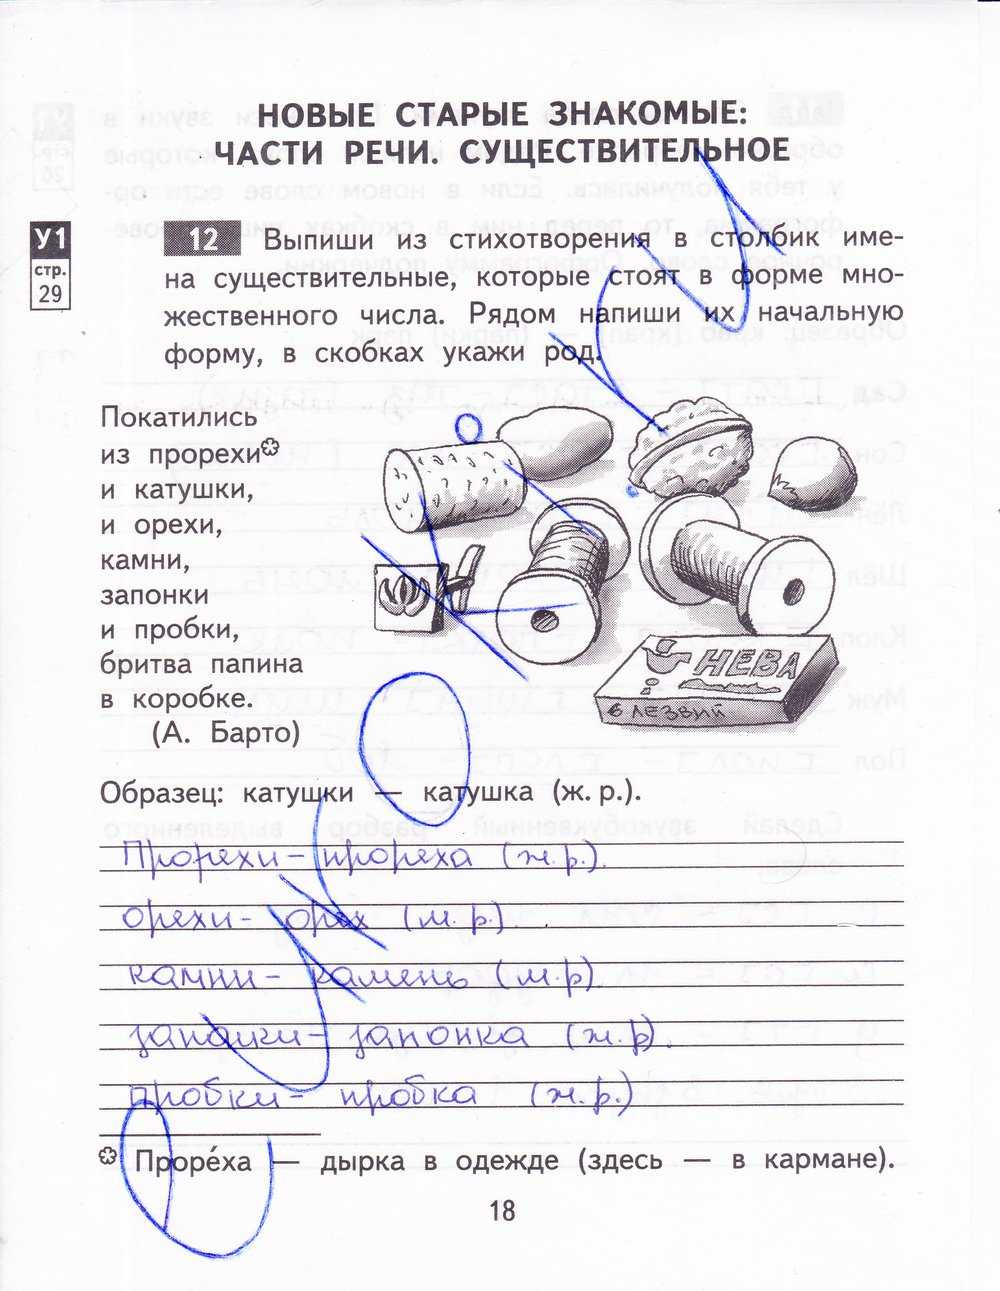 НОВЫЕ СТАРЫЕ ЗНАКОМЫЕ:
ЧАСТИ РЕЧИ. СУЩЕСТВИТЕЛЬНОЕ
У1
стр.
29
12 Выпиши из стихотворения в столбик име-
на существительные, которые стоят в форме мно-
жественного числа. Рядом напиши их начальную
форму, в скобках укажи род.
Покатились
из прорехи
и катушки,
и орехи,
камни,
запонки
и пробки,
бритва папина
в коробке.
(А. Барто)
НЕВА
6 ЛЕЗВИЙ
Образец: катушки — катушка (ж. р.).
Прорехи – прореха (ж. р.).
орехи – орех (м. р.).
камни – камень (м. р).
запонки – запонка (ж. р).
пробки – пробка (ж. р.)
Проре́ха — дырка в одежде (здесь — в кармане).
18